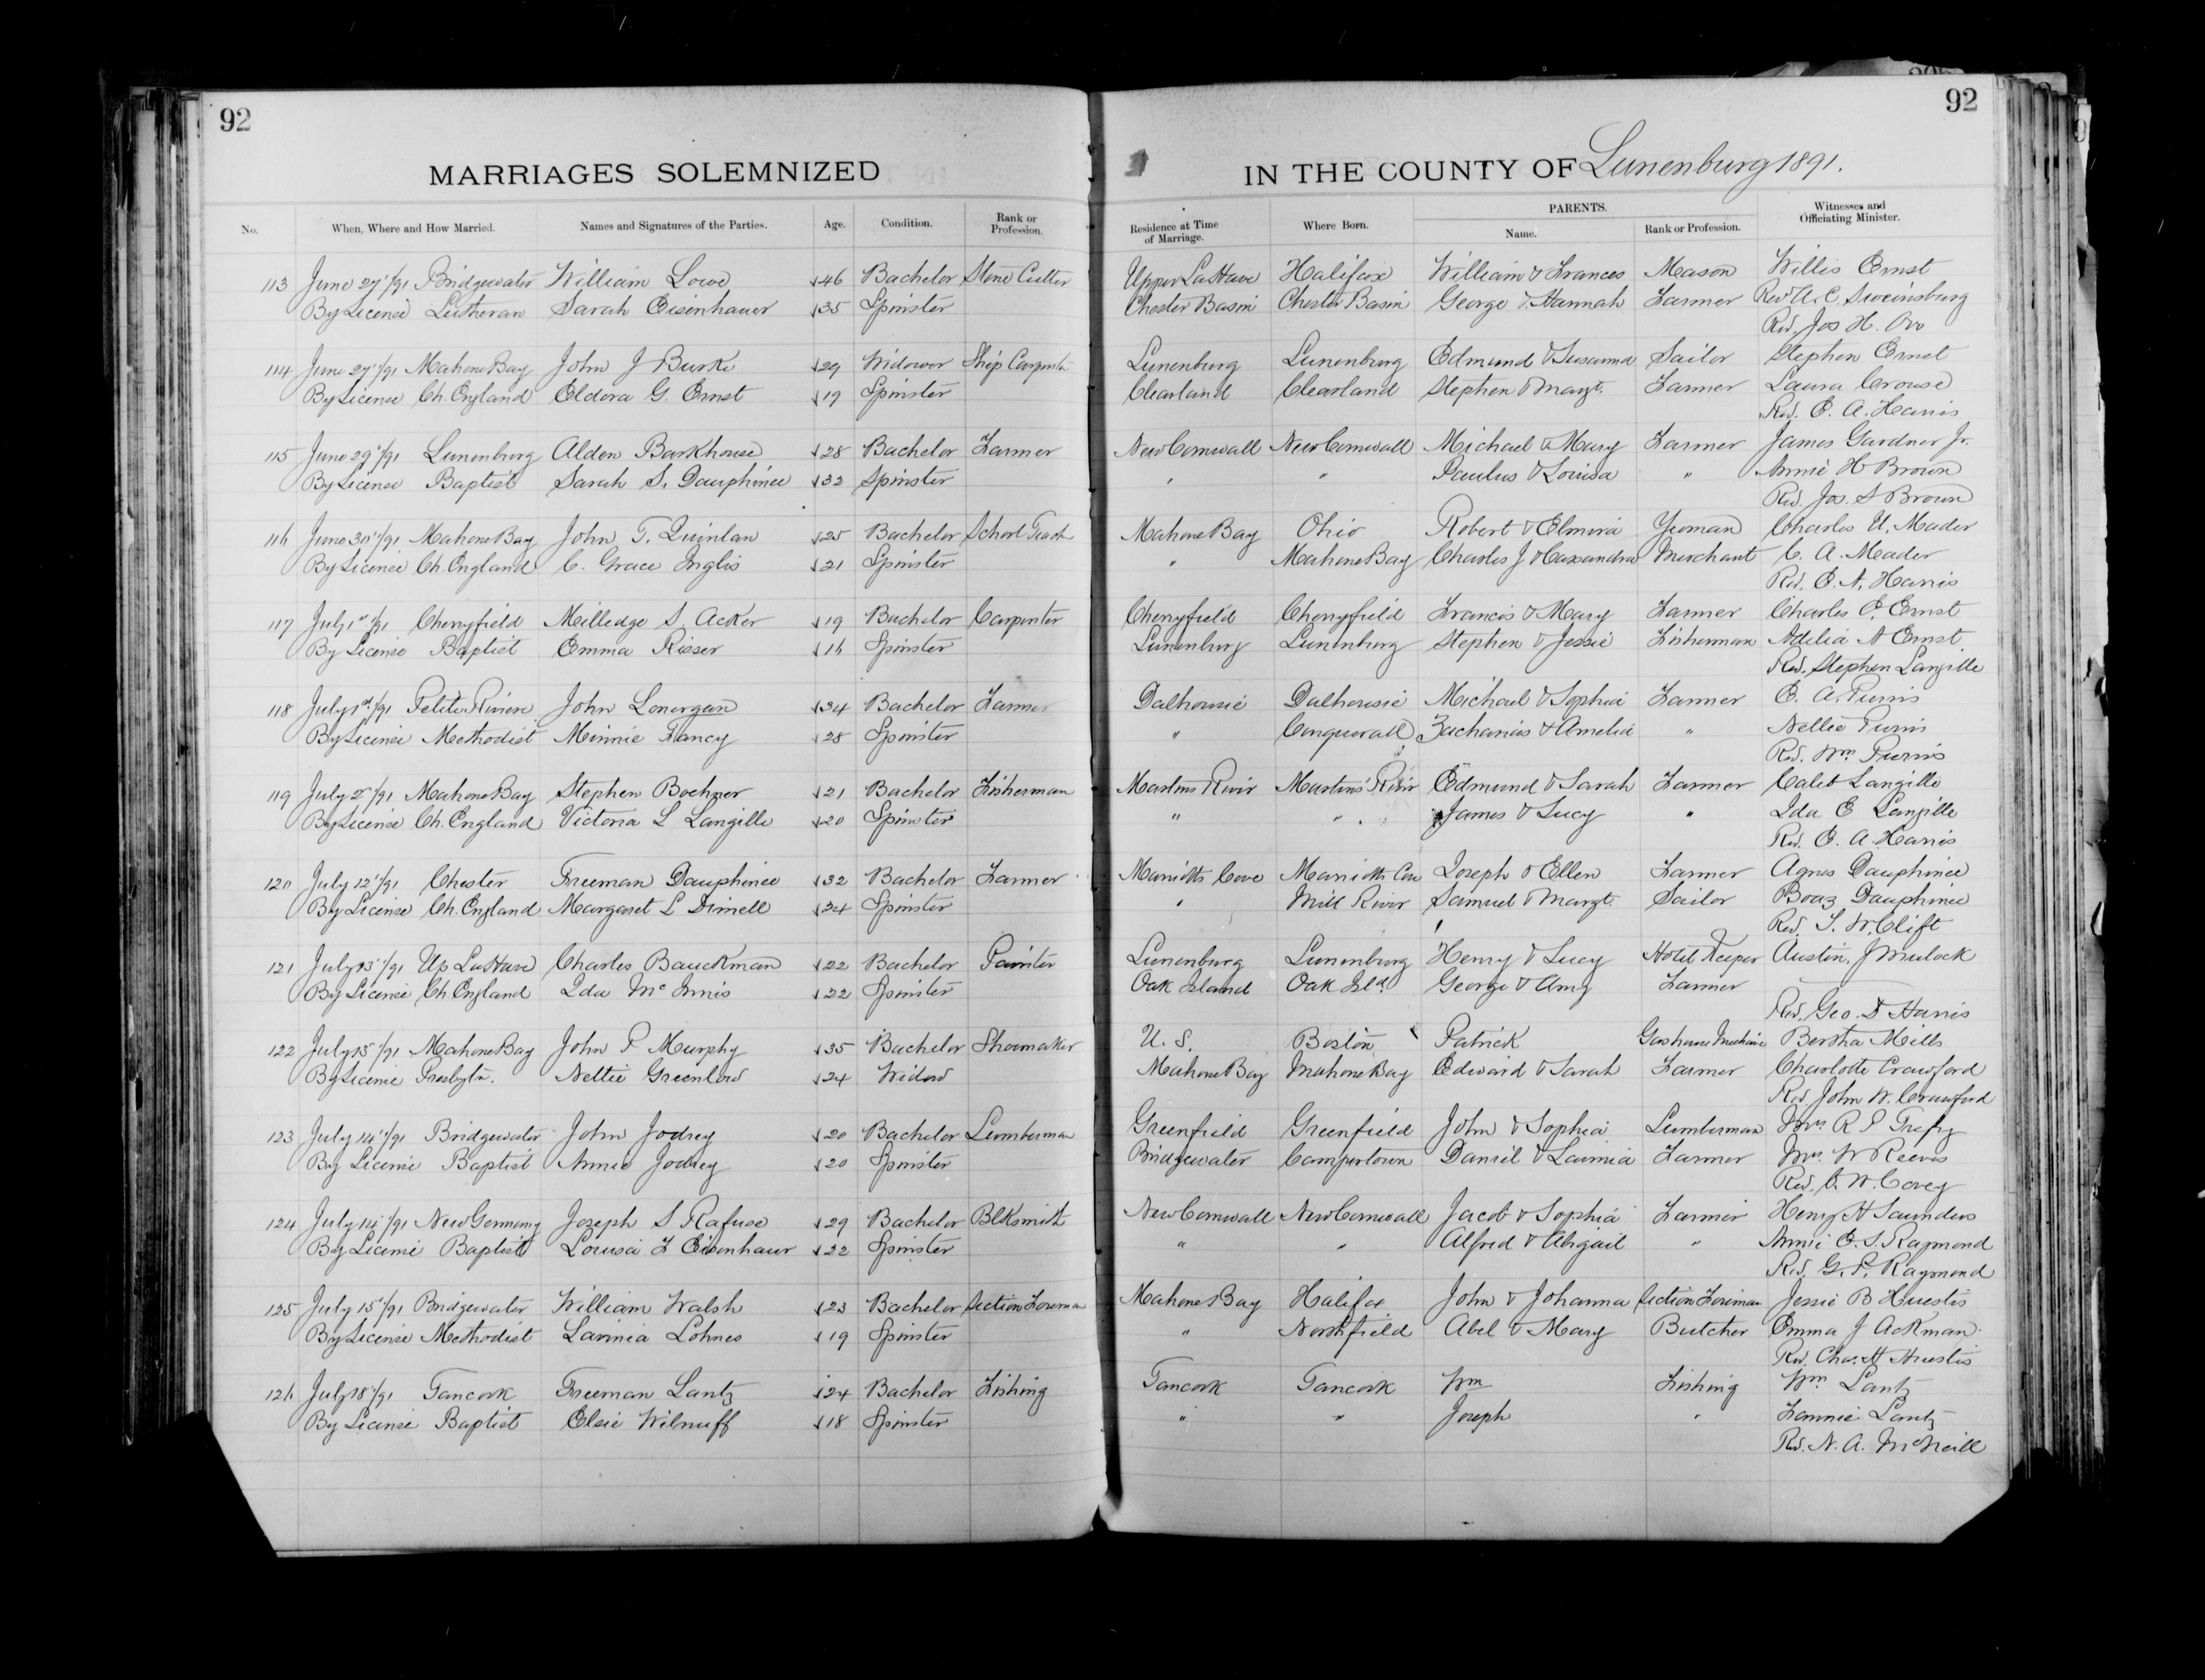 92
92
MARRIAGES SOLEMNIZED IN THE COUNTY OF Lunenburg 1891.
No. When, Where and How Married. Names and Signatures of the Parties. Age. Condition. Rank or Profession. Residence at Time of Marriage. Where Born. PARENTS. Name. Rank or Profession. Witnesses and Officiating Minister.
113 June 27/91 Bridgewater William Lowe 46 Bachelor Stone Cutter Upper LaHave Halifax William & Frances Mason Willis Ernst
By License Lutheran Sarah Eisenhauer 35 Spinster Chester Basin Chester Basin George & Hannah Farmer Rev A. C. Sweinsburg
Rev. Jos H.
114 June 27/91 Mahone Bay John J Burke 29 Widower Ship Carpenter Lunenburg Lunenburg Edmund & Susanna Sailor Stephen Ernst
By License Ch. England Eldora G. Ernst 19 Spinster Clearland Clearland Stephen & Margt. Farmer Laura Crouse
Rev. E. A. Harris
115 June 29/91 Lunenburg Alden Barkhouse 28 Bachelor Farmer New Cornwall New Cornwall Michael & Mary Farmer James Gardner Jr.
By License Baptist Sarah S. Dauphinee 32 Spinster " " Paulus & Louisa " Annie H Brown
Rev Jos. S Brown
116 June 30/91 Mahone Bay John T. Quinlan 25 Bachelor School Teach Mahone Bay Ohio Robert & Elmira Yeoman Charles U. Mader
By License Ch. England C. Grace Inglis 21 Spinster " Mahone Bay Charles J & Cassandra Merchant C. A. Mader
Rev. E. A. Harris
117 July 1st/91 Cherryfield Milledge S. Acker 19 Bachelor Carpenter Cherryfield Cherryfield Francis & Mary Farmer Charles E. Ernst
By License Baptist Emma Rieser 16 Spinster Lunenburg Lunenburg Stephen & Jessie Fisherman Adelia A Ernst
Rev. Stephen Langille
118 July 1st/91 Petite Riviere John Lonergan 34 Bachelor Farmer Dalhousie Dalhousie Michael & Sophia Farmer E. A. Purvis
By License Methodist Minnie Fancy 28 Spinster " Conquerall Zacharias & Amelia " Nellie Purvis
Rev. Wm Purvis
119 July 2/91 Mahone Bay Stephen Bochner 21 Bachelor Fisherman Martins River Martins River Edmund & Sarah Farmer Caleb Langille
By License Ch. England Victoria L Langille 20 Spinster " " James & Lucy " Ida E Langille
Rev. E. A. Harris
120 July 12/91 Chester Freeman Dauphinee 32 Bachelor Farmer Marriotts Cove Marriotts Cove Joseph & Ellen Farmer Agnes Dauphinee
By License Ch. England Margaret L Dimell 24 Spinster " Mill River Samuel & Margt. Sailor Boaz Dauphinee
Rev. T. W. Clift
121 July 13/91 Up LaHave Charles Bauckman 22 Bachelor Painter Lunenburg Lunenburg Henry & Lucy Hotel Keeper Austin J Mulock
By License Ch England Ida McInnis 22 Spinster Oak Island Oak Isld. George & Amy Farmer
Rev. Geo. D Harris
122 July 15/91 Mahone Bay John P Murphy 35 Bachelor Shoemaker U. S. Boston Patrick Gashouse Bertha Mills
By License Presbytn. Nettie Greenlow 24 Widow Mahone Bay Mahone Bay Edward & Sarah Farmer Charlotte Crawford
Rev John W. Crawford
123 July 14/91 Bridgewater John Jodrey 20 Bachelor Lumberman Greenfield Greenfield John & Sophia Lumberman Mrs R P Trefry
By License Baptist Annie Jodrey 20 Spinster Bridgewater Campertown Daniel & Laumia Farmer Mrs. W Reeves
Rev. C. W. Corey
124 July 14/91 New Germany Joseph S Rafuse 29 Bachelor Blksmith New Cornwall New Cornwall Jacob & Sophia Farmer Henry H Saunders
By License Baptist Louisa F Eisenhaur 22 Spinster " " Alfred & Abigail " Annie E. S. Raymond
Rev. G. P. Raymond
125 July 15/91 Bridgewater William Walsh 23 Bachelor Section Foreman Mahone Bay Halifax John & Johanna Section Foreman Jessie B Huestis
By License Methodist Lavinia Lohnes 19 Spinster " Northfield Abel & Mary Butcher Emma J Ackman
Rev. Chas. H Huestis
126 July 18/91 Tancook Freeman Lantz 24 Bachelor Fishing Tancook Tancook Wm Fishing Wm Lantz
By License Baptist Elsie Wilnuff 18 Spinster " " Joseph " Fannie Lantz
Rev. N. A. McNeill